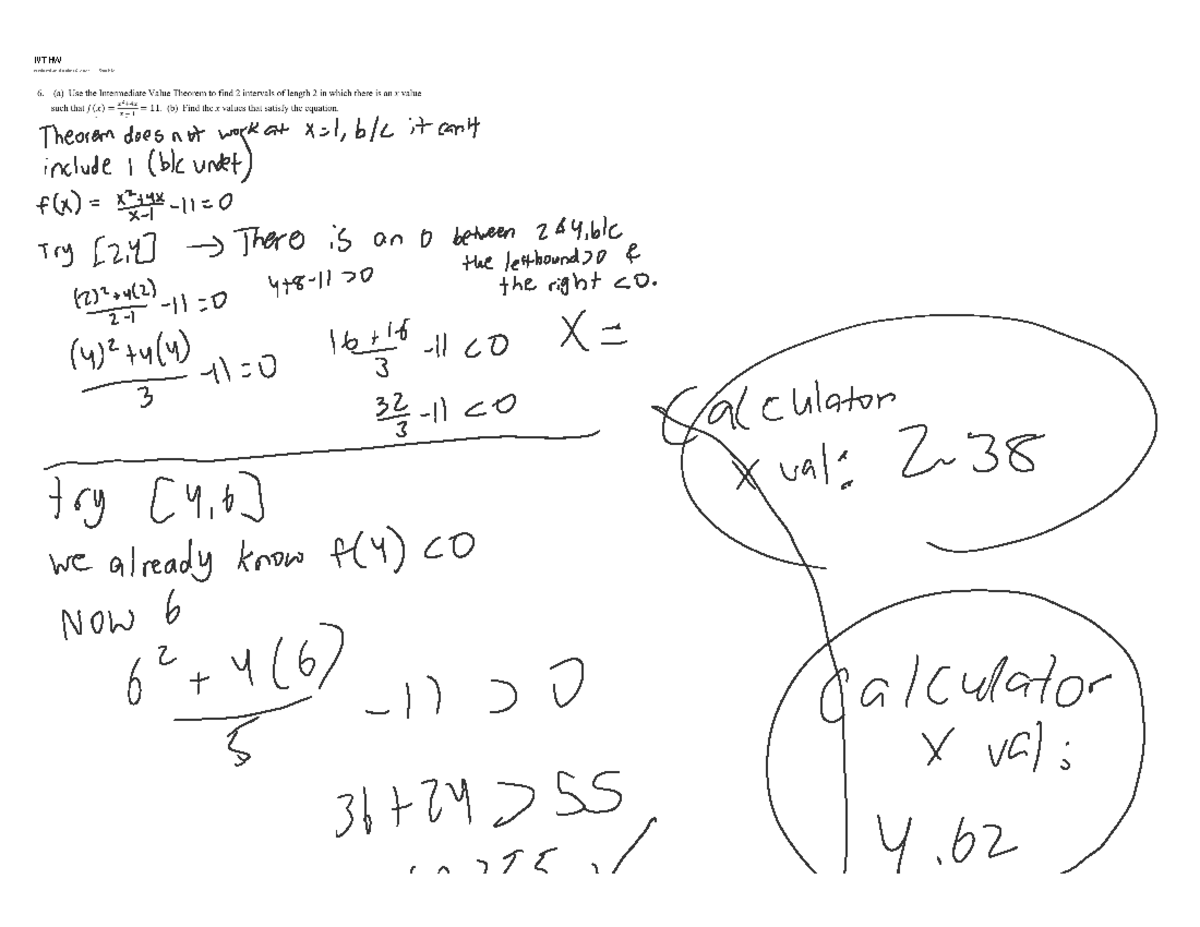 IVT HW
6. (a) Use the Intermediate Value Theorem to find 2 intervals of length 2 in which there is an x value
such that f(x) = (x²+4x)/(x−1) = 11. (b) Find the x values that satisfy the equation.
Theorem does not work at x=1, b/c it can't
include 1 (b/c undef)
f(x) = (x²+4x)/(x-1) -11=0
Try [2,4] → There is an 0 between 2&4, b/c
the leftbound>0 &
the right <0.
((2)²+4(2))/(2-1) -11=0
4+8-11>0
((4)²+4(4))/3 -11=0
(16+16)/3 -11<0
X =
32/3 -11<0
Calculator
x val: 2.38
try [4,6]
we already know f(4)<0
NOW 6
(6²+4(6))/5 -11>0
36+24>55
Calculator
x val:
4.62